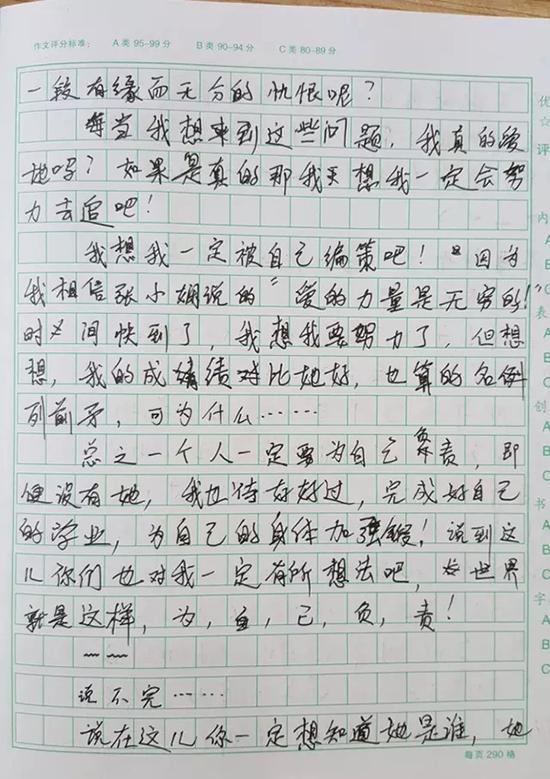 作文评分标准： A类95-99分 B类90-94分 C类80-89分
一段有缘而无分的仇恨呢？
每当我想来到这些问题，我真的爱
她吗？如果是真的那我天想我一定会努
力去追吧！
我想我一定被自己编策吧！因为
我相信张小娴说的“爱的力量是无穷的！”
时间快到了，我想我要努力了，但想
想，我的成绩对比她好，也算的名例
列前矛，可为什么……
总之一个人一定要为自己负责，即
便没有她，我也得好好过，完成好自己
的学业，为自己的身体加强！说到这
儿你们也对我一定有所想法吧，世界
就是这样，为，自，己，负，责！
说不完……
说在这儿你一定想知道她是谁，她
每页290格
优
☆
评
内
A
B
C
表
A
B
C
创
A
B
C
书
字
A
B
C